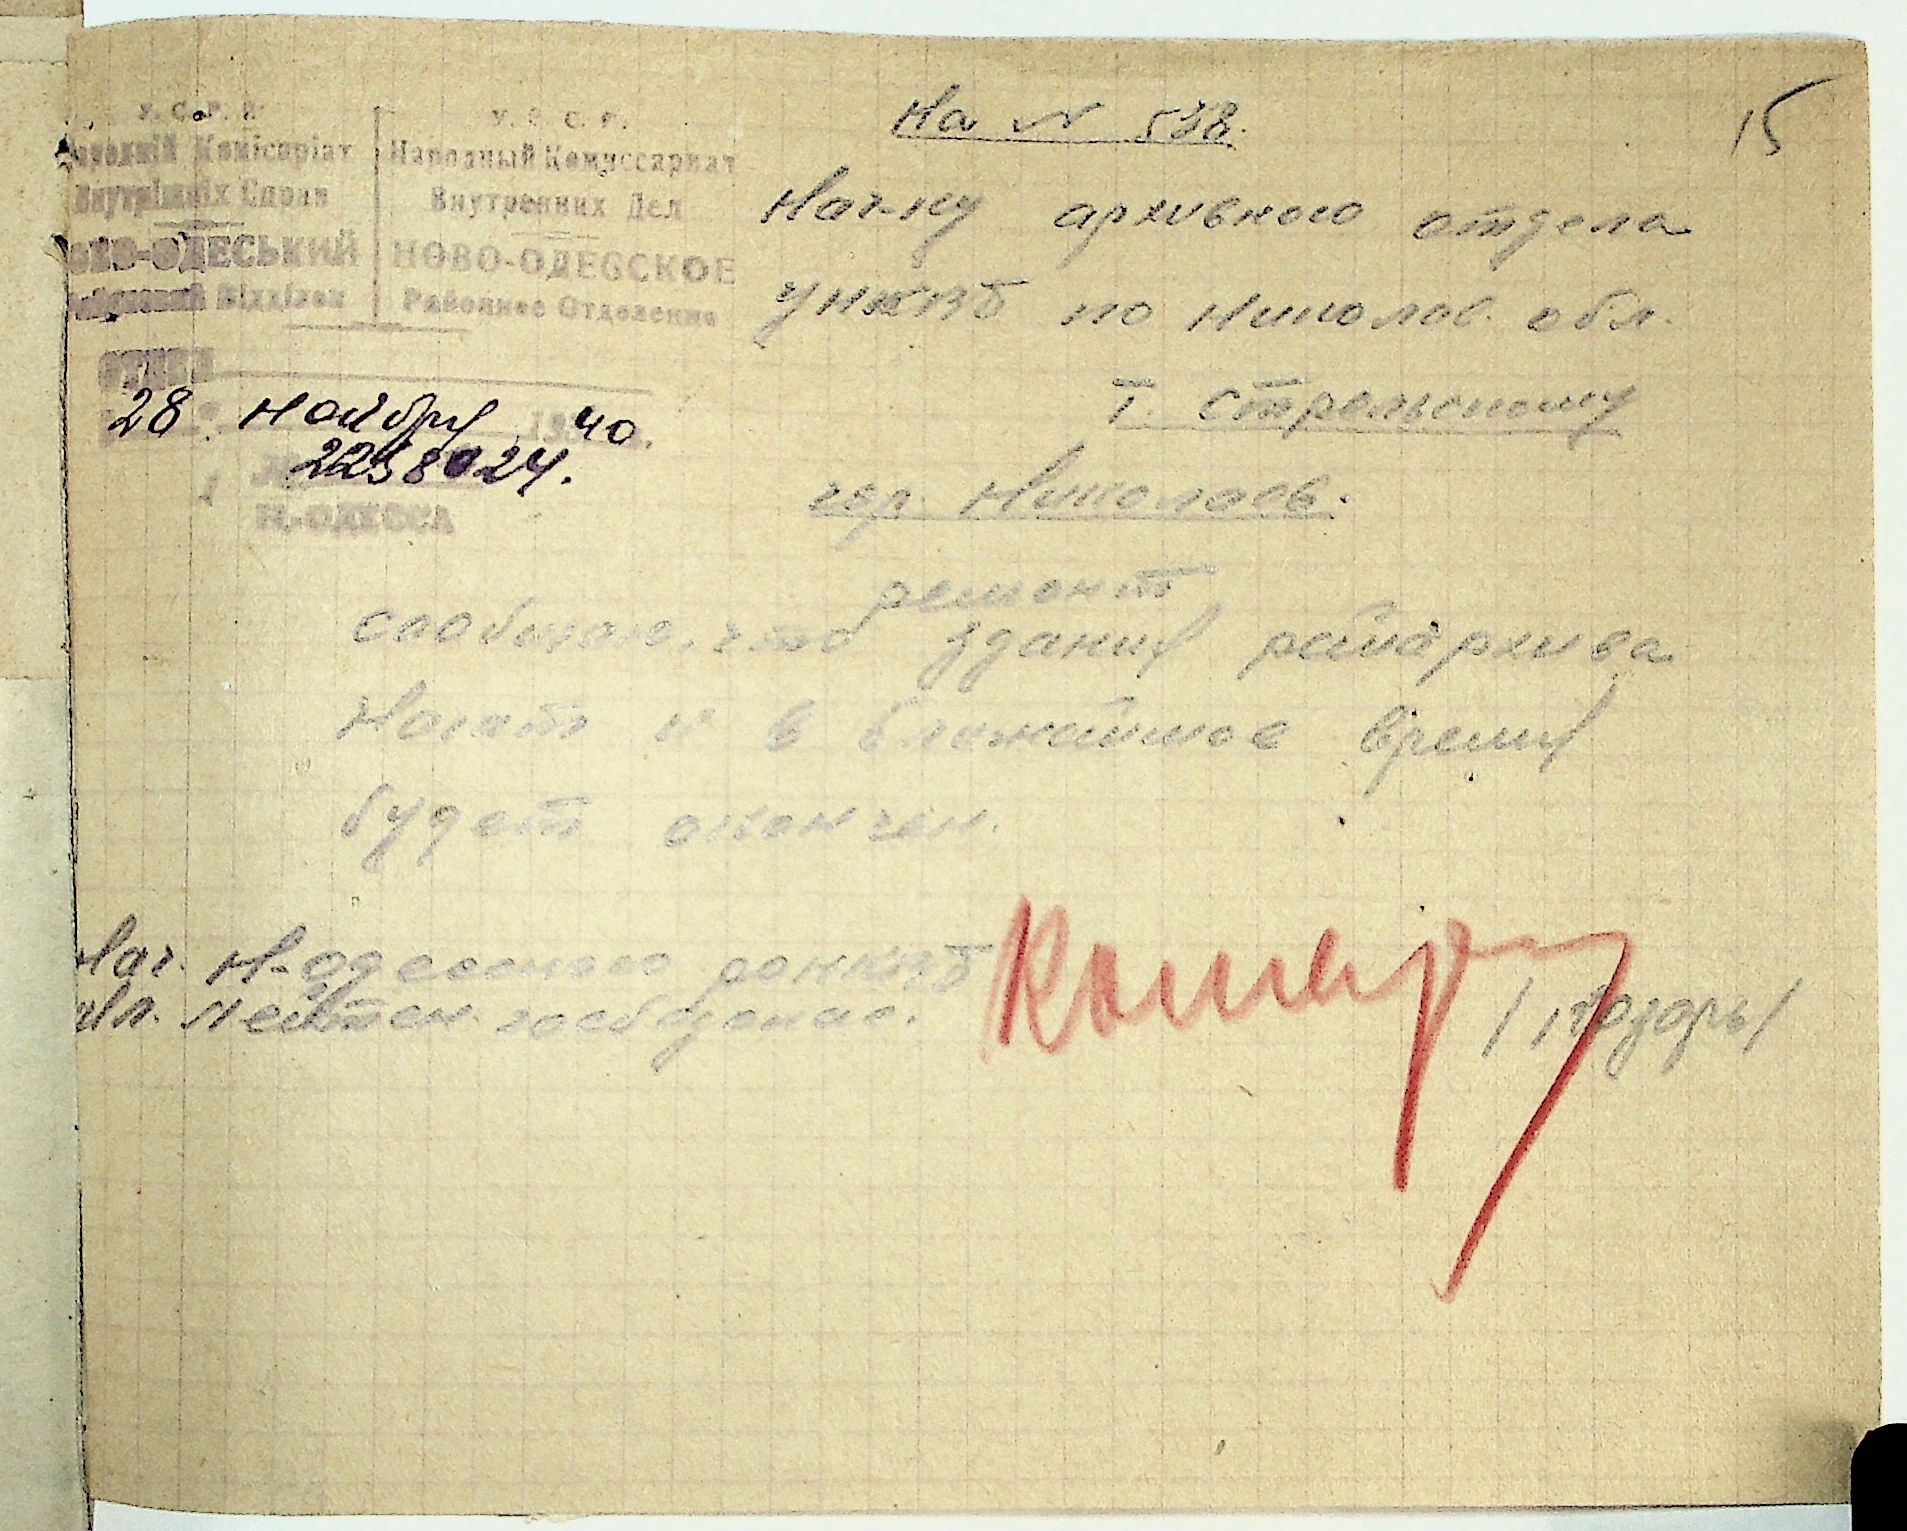 15
У. С. Р. Р.
Народній Комісаріат
Внутрішніх Справ
НОВО-ОДЕСЬКИЙ
Районовий Відділок
У. С. С. Р.
Народный Комуссариат
Внутренних Дел
НОВО-ОДЕССКОЕ
Районное Отделение
28 ноября 1940
2258024.
Н.-ОДЕССА
На № 538.
Нач-ку архивного отдела
УНКВД по Николаев. обл.
т. Стрельскому
гор. Николаев.
ремонт
Сообщаю, что здания райархива
начат и в ближайшое время
будет окончен.
Нач. Н-Одесского РОНКВД
мл. лейтен. госбезопас.